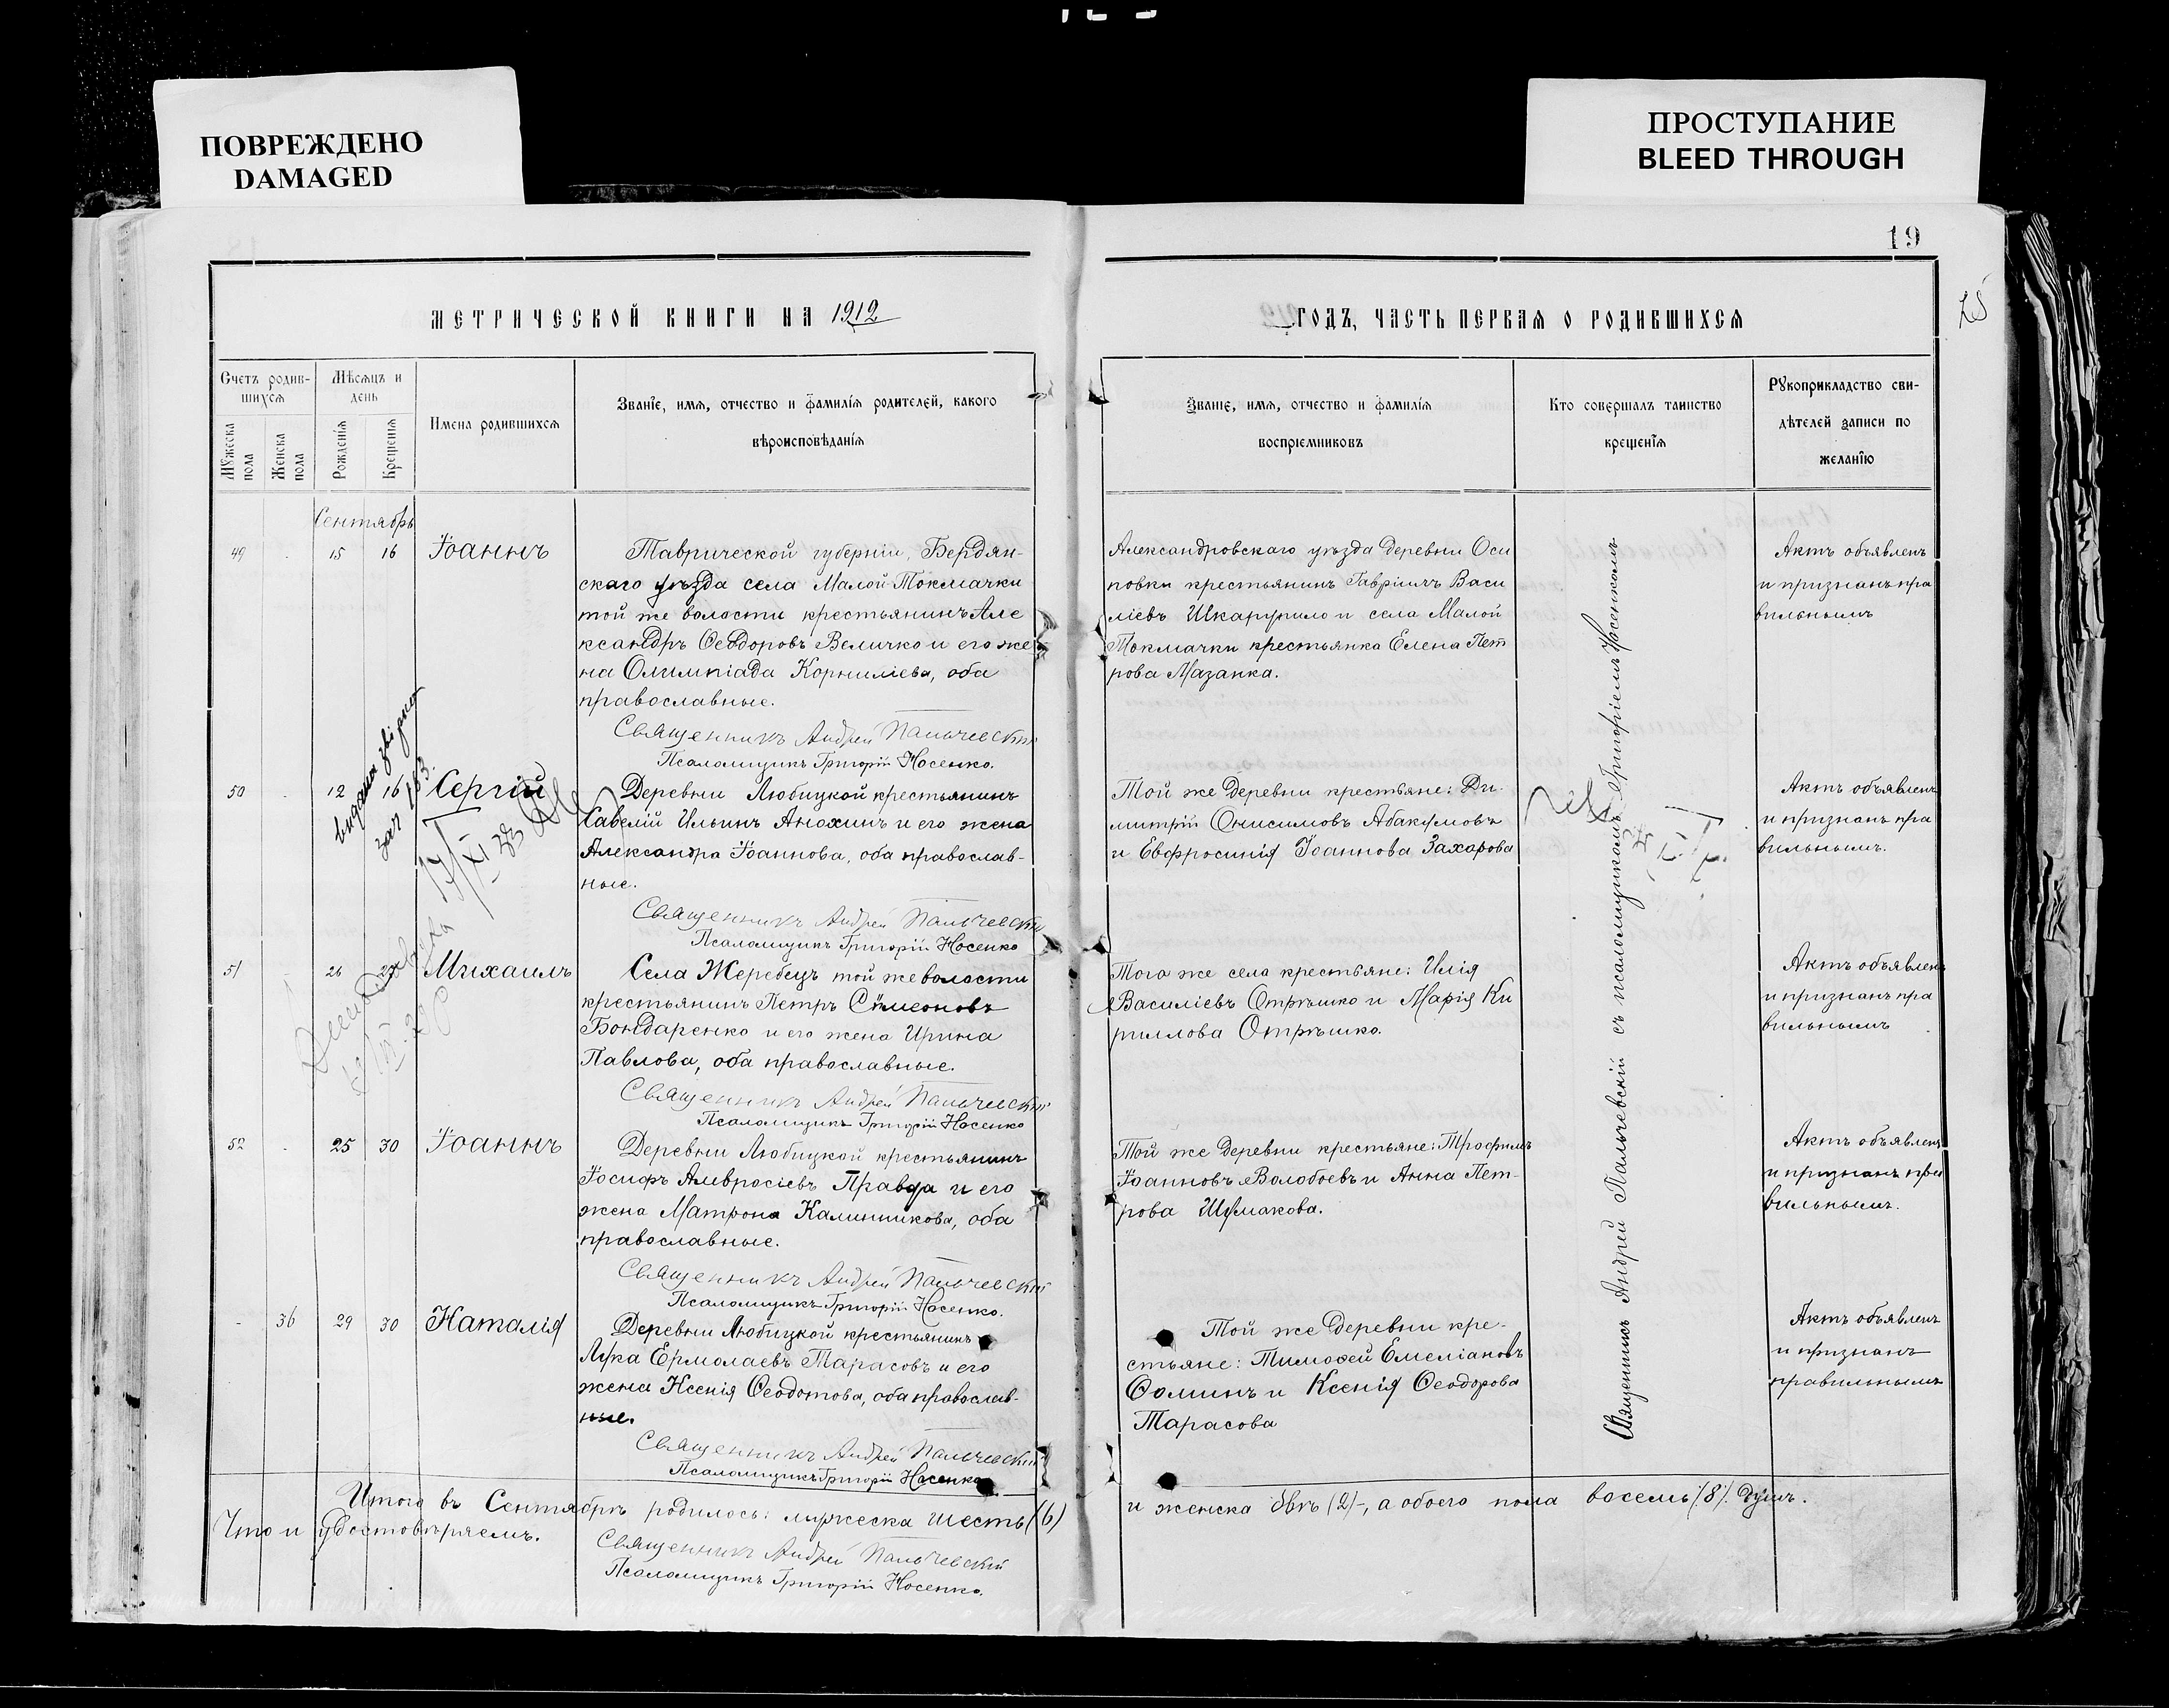 ПОВРЕЖДЕНО
DAMAGED
ПРОСТУПАНИЕ
BLEED THROUGH
19
25
МЕТРИЧЕСКОЙ КНИГИ НА 1912
ГОДЪ, ЧАСТЬ ПЕРВАЯ О РОДИВШИХСЯ
Счетъ родив-
шихся
Мужеска пола
Женска пола
Мѣсяцъ и
день
Рожденія
Крещенія
Имена родившихся
Званіе, имя, отчество и фамилія родителей, какого
вѣроисповѣданія
Званіе, имя, отчество и фамилія
воспріемниковъ
Кто совершалъ таинство
крещенія
Рукоприкладство сви-
дѣтелей записи по
желанію
Сентябрь
49 15 16 Іоаннъ
Таврической губерніи, Бердян-
скаго уѣзда села Малой-Токмачки
той же волости крестьянинъ Але
ксандръ Ѳеодоровъ Величко и его же
на Олимпіада Корниліева, оба
православные.
Священникъ Андрей Пальчевскій
Псаломщикъ Григорій Носенко.
Александровскаго уѣзда деревни Оси
повки крестьянинъ Гавріилъ Васи
ліевъ Шкарупило и села Малой
Токмачки крестьянка Елена Пет
рова Мазанка.
Актъ объявленъ
и признанъ пра
вильнымъ
50 12 16 Сергій
Деревни Любицкой крестьянинъ
Савелій Ильинъ Анохинъ и его жена
Александра Іоаннова, оба православ-
ные.
Священникъ Андрей Пальчевскій
Псаломщикъ Григорій Носенко
Той же деревни крестьяне: Ди-
митрій Онисимовъ Абакумовъ
и Евфросинія Іоаннова Захарова
Актъ объявленъ
и признанъ пра
вильнымъ.
51 26 27 Михаилъ
Села Жеребецъ той же волости
крестьянинъ Петръ Симеоновъ
Бондаренко и его жена Ирина
Павлова, оба православные.
Священникъ Андрей Пальчевскій
Псаломщикъ Григорій Носенко
Того же села крестьяне: Илія
Василіевъ Отрѣшко и Марія Ки
риллова Отрѣшко.
Актъ объявленъ
и признанъ пра
вильнымъ
52 25 30 Іоаннъ
Деревни Любицкой крестьянинъ
Іосифъ Амвросіевъ Правда и его
жена Матрона Калинникова, оба
православные.
Священникъ Андрей Пальчевскій
Псаломщикъ Григорій Носенко.
Той же деревни крестьяне: Трофимъ
Іоанновъ Волобоевъ и Анна Пет-
рова Шумакова.
Актъ объявленъ
и признанъ пра
вильнымъ.
- 36 29 30 Наталія
Деревни Любицкой крестьянинъ
Лука Ермолаевъ Тарасовъ и его
жена Ксенія Ѳеодотова, оба православ-
ные.
Священникъ Андрей Пальчевскій
Псаломщикъ Григорій Носенко
Той же деревни кре-
стьяне: Тимоѳей Емеліановъ
Ѳоминъ и Ксенія Ѳеодорова
Тарасова
Актъ объявленъ
и признанъ
правильнымъ
Священникъ Андрей Пальчевскій съ псаломщикомъ Григоріемъ Носенкомъ
Итого въ Сентябрѣ родилось: мужеска шесть (6)
и женска двѣ (2)-, а обоего пола восемь /.8/. душъ.
Что и удостовѣряемъ.
Священникъ Андрей Пальчевскій
Псаломщикъ Григорій Носенко.